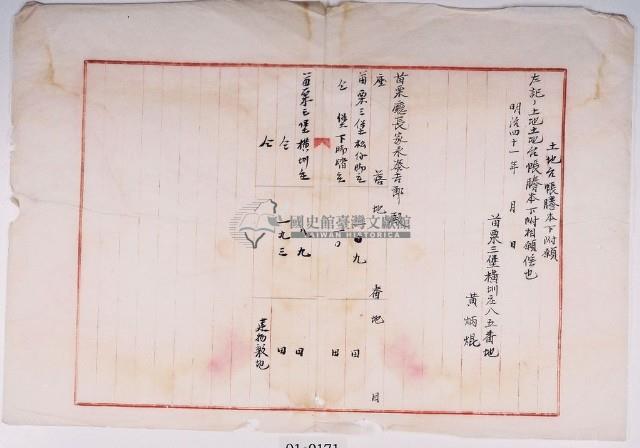 土地台帳謄本下附願
左記ノ土地土地台帳謄本下附相願候也
明治四十一年 月 日
苗栗三堡橫圳庄八五番地
黃炳焜
苗栗廳長家永泰吉郎殿
座 落 地 番 地 目
苗栗三堡 九 田
仝 堡 下 庄 田
苗栗三堡橫圳庄 九 田
仝 一九三 田
仝 建物敷地
國史館臺灣文獻館
TAIWAN HISTORICA
01-0171